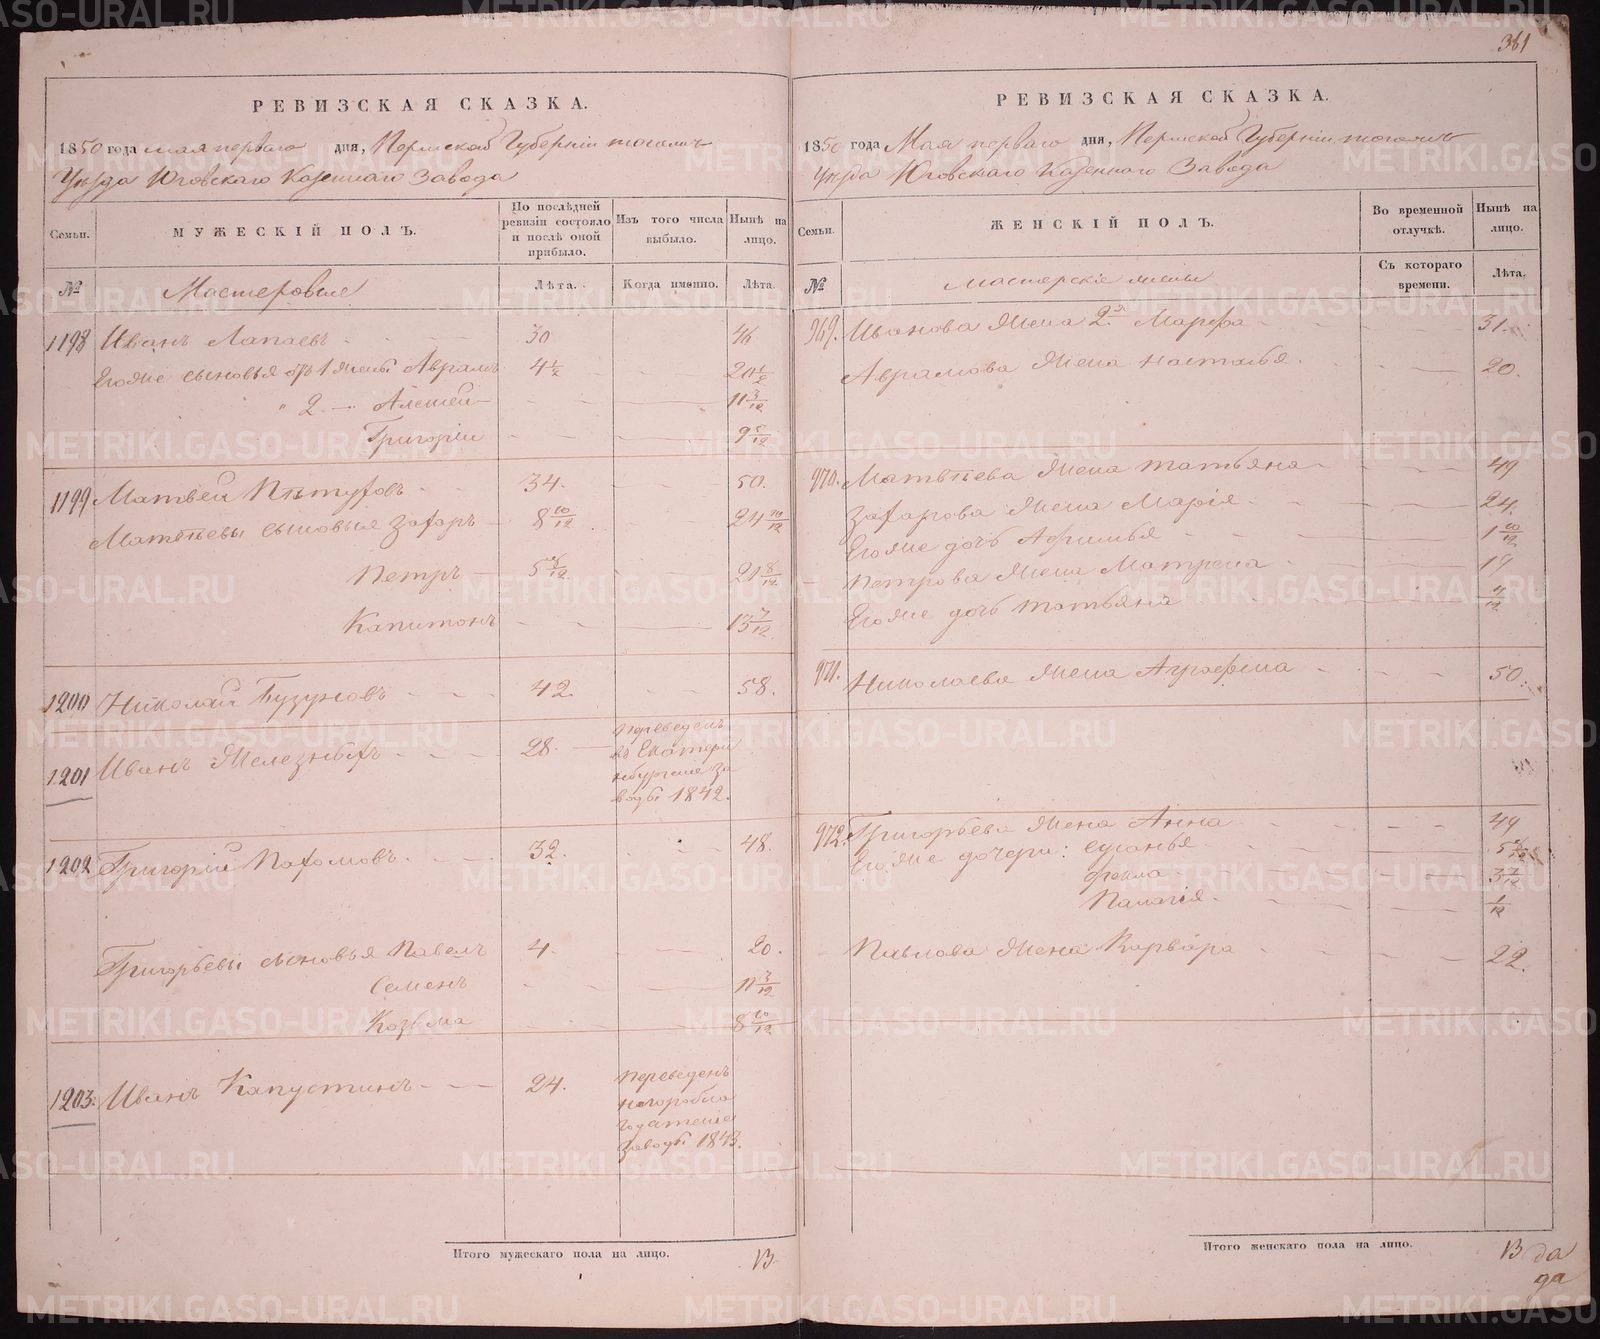 361
РЕВИЗСКАЯ СКАЗКА.
1850 года мая перваго дня, Пермской Губерніи тогожъ
Уѣзда Юговскаго Казеннаго Завода
Семьи.
МУЖЕСКІЙ ПОЛЪ.
По послѣдней ревизіи состояло и послѣ оной прибыло.
Изъ того числа выбыло.
Нынѣ на лицо.
№ Мастеровые Лѣта. Когда именно. Лѣта.
1198 Иванъ Лапаевъ 30 46
Егоже сыновья отъ 1 жены Аврамъ 4 1/2 20 1/2
" 2 — Алексей 11 3/12
Григоріи 9 5/12
1199 Матвеи Пѣтуховъ 34. 50.
Матвѣевы сыновья Захаръ 8 10/12 24 10/12
Петръ 5 8/12 21 8/12
Капитонъ 13 7/12
1200 Николай Бузуновъ 42. 58.
1201 Иванъ Железновъ 28. Переведенъ
въ Екатери
нбургскіе за
воды 1842.
1202 Григоріи Пахомовъ 32. 48.
Григорьевы сыновья Павелъ 4. 20.
Семенъ 11 3/12
Козьма 8 10/12
1203. Иванъ Капустинъ 24. Переведенъ
на горобла
годатскіе
заводы 1843.
Итого мужескаго пола на лицо. 13
РЕВИЗСКАЯ СКАЗКА.
1850 года Мая перваго дня, Пермской Губерніи тогожъ
Уѣзда Юговскаго Казеннаго Завода
Семьи.
ЖЕНСКІЙ ПОЛЪ.
Во временной отлучкѣ.
Нынѣ на лицо.
№ мастерскіе жены Съ котораго времени. Лѣта.
969. Иванова жена 2я Марфа 31.
Аврамова жена Наталья 20.
970. Матвѣева жена Татьяна 49
Захарова жена Марія 24.
Егоже дочь Афимья 1 10/12
Петрова жена Матрена 19
Егоже дочь Татьяна
971. Николаева жена Аграфена 50.
972. Григорьева жена Анна 49
Егоже дочери: Сусанья
Фекла 3 7/12
Палагія 1/12
Павлова жена Варвара 22.
Итого женскаго пола на лицо. 13
METRIKI.GASO-URAL.RU